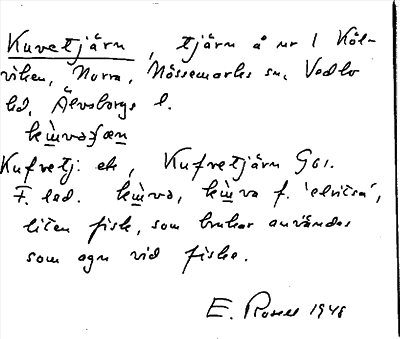 Kuvetjärn, tjärn å nr 1 Köl-
viken, Norra, Nössemarks sn, Vedbo
hd, Älvsborgs l.
Kufvetj: ek, Kufvetjärn Gsl.
F. led. f. 'elritsa',
liten fisk, som brukar användas
som agn vid fiske.
E. Rosell 1948